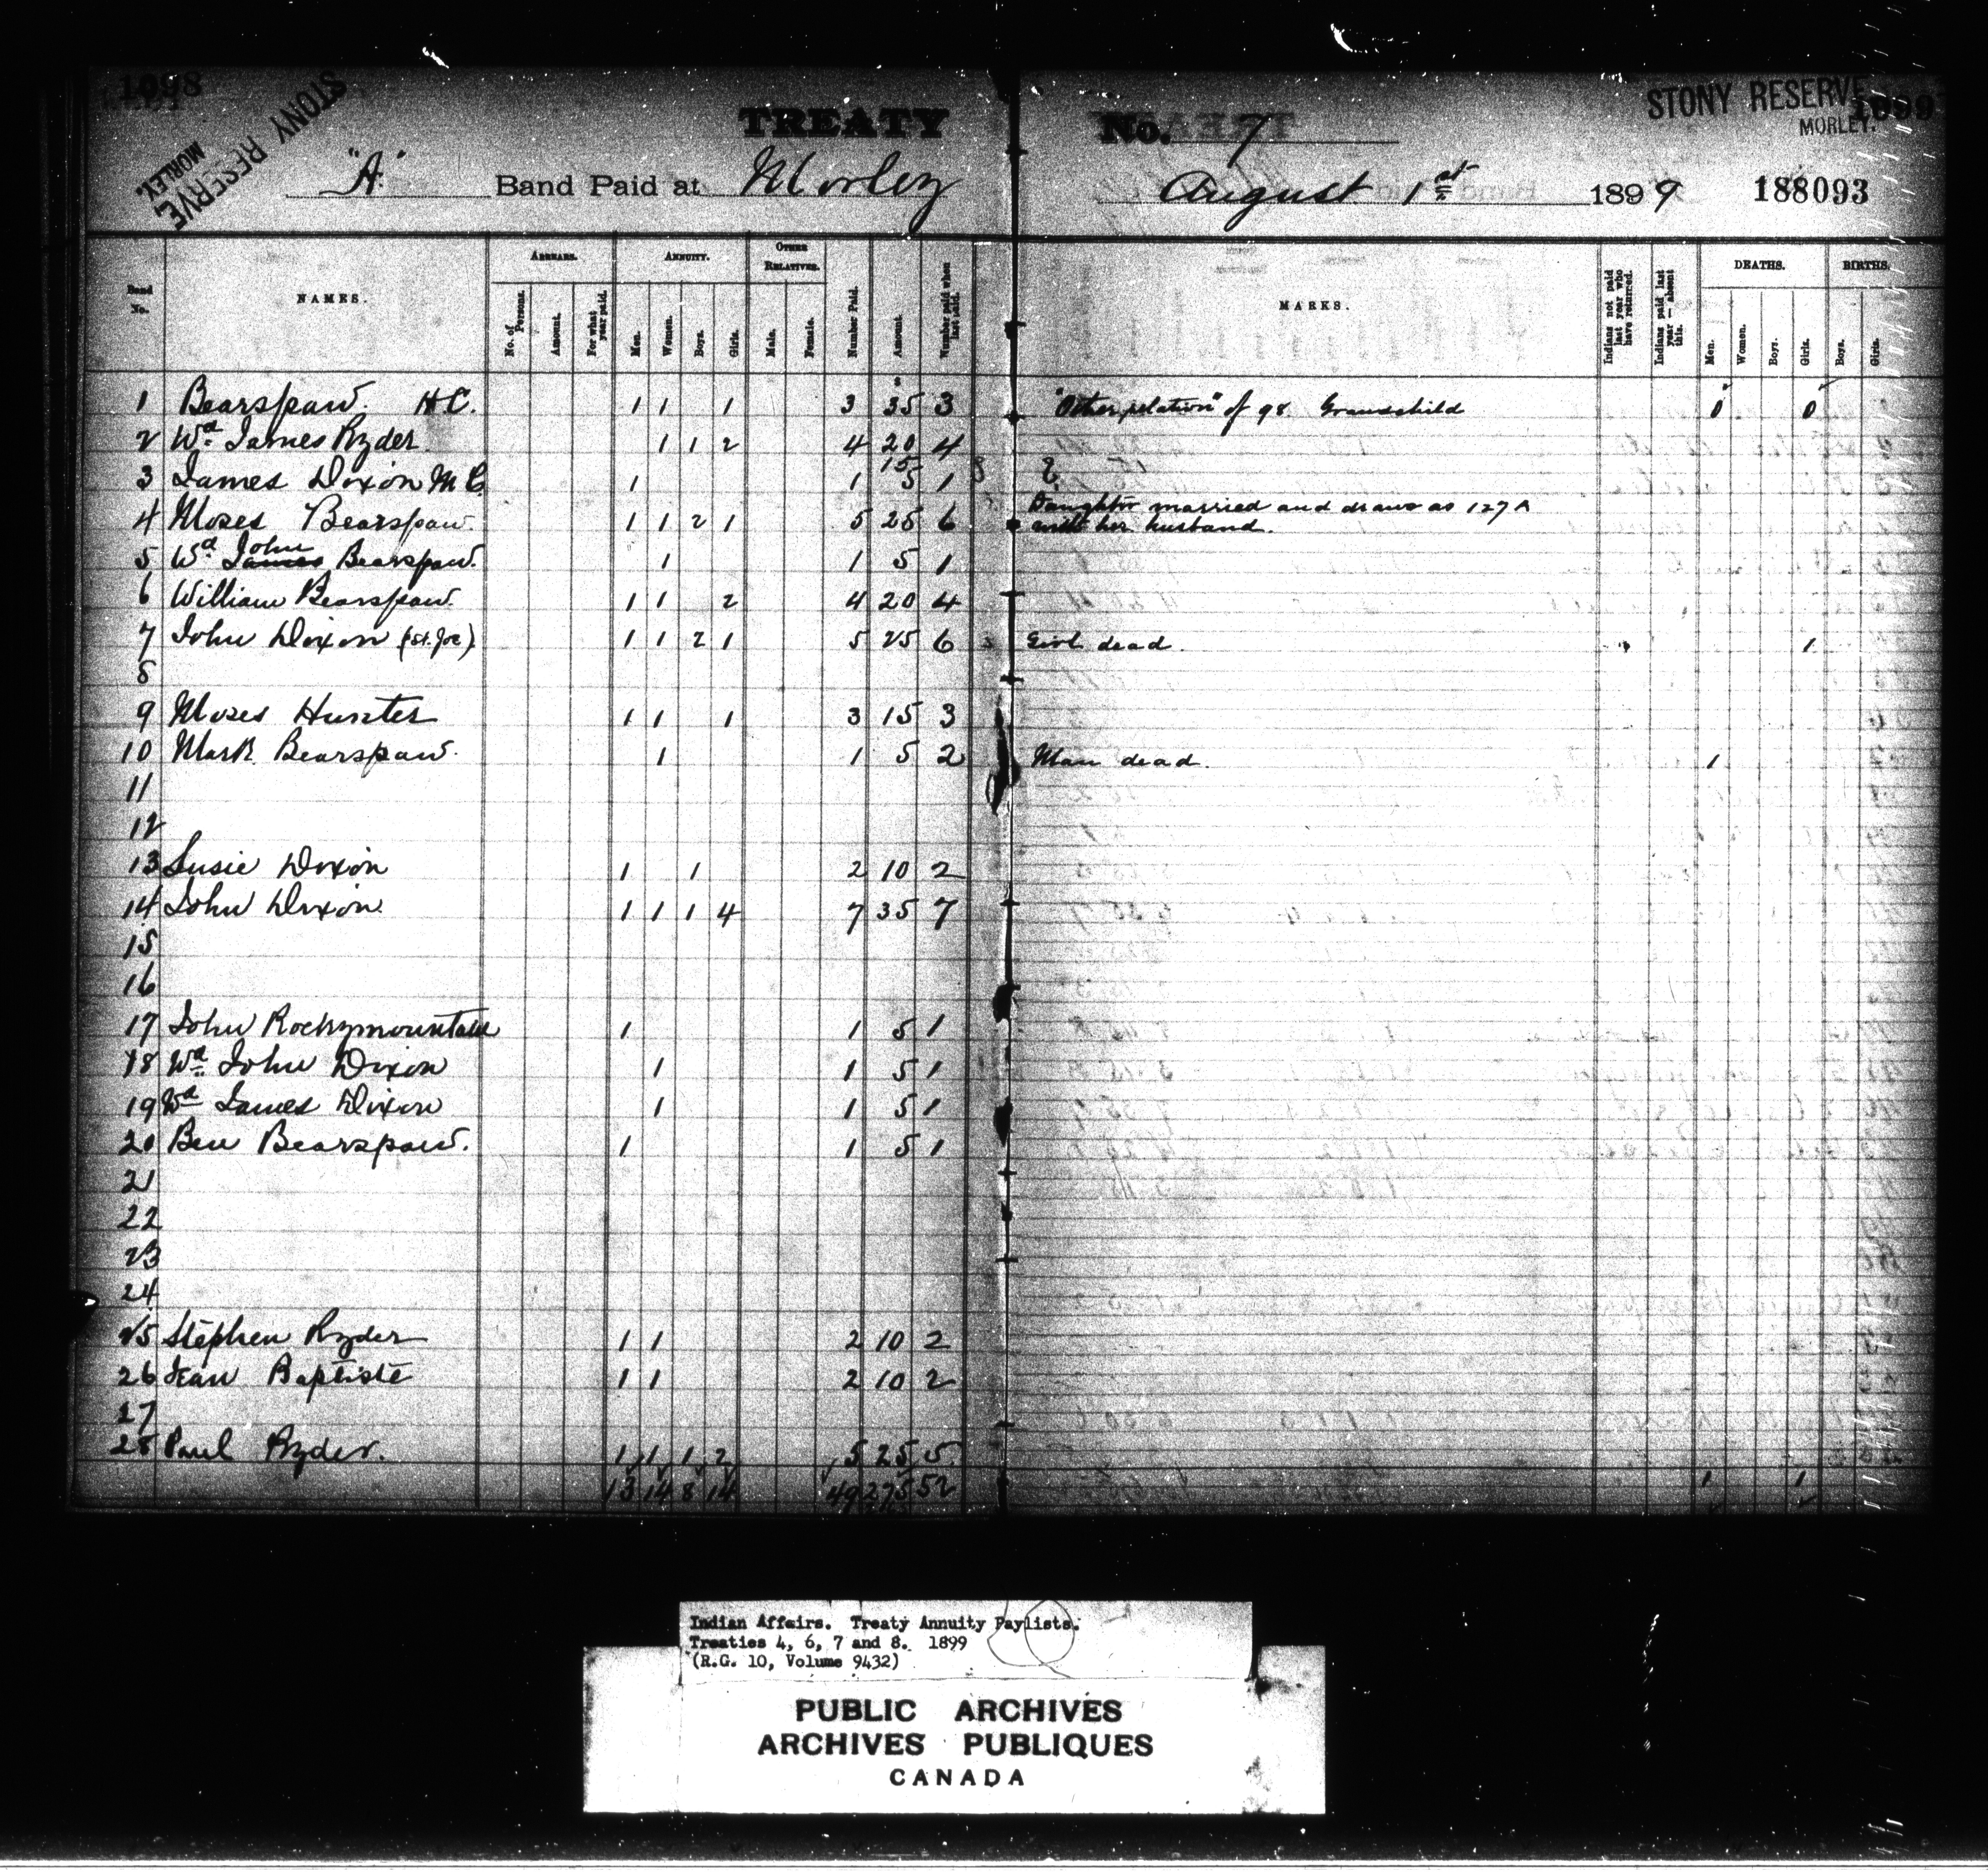 1098
STONY RESERVE
MORLEY.
TREATY No. 7
STONY RESERVE
MORLEY.
"A" Band Paid at Morley August 1st 1899 188093
Band No.
NAMES.
ARREARS.
No. of Persons.
Amount.
For what year paid.
ANNUITY.
Men.
Women.
Boys.
Girls.
OTHER RELATIVES.
Male.
Female.
Number Paid.
Amount.
Number paid when last paid.
MARKS.
Indians not paid last year who have returned.
Indians paid last year — absent this.
DEATHS.
Men.
Women.
Boys.
Girls.
BIRTHS.
Boys.
Girls.
1 Bearspaw. H C. 1 1 1 3 35 3 "Other relation" of 98 Grandchild 0 0
2 Wd. James Ryder 1 1 2 4 20 4
3 James Dixon M C. 1 1 15 5 1
4 Moses Bearspaw. 1 1 2 1 5 25 6 Daughter married and draws as 127 A
with her husband.
5 Wd. James John Bearspaw. 1 1 5 1
6 William Bearspaw. 1 1 2 4 20 4
7 John Dixon (St. Joe). 1 1 2 1 5 25 6 Girl dead. 1
8
9 Moses Hunter 1 1 1 3 15 3
10 Mark Bearspaw. 1 1 5 2 Man dead. 1
11
12
13 Susie Dixon 1 1 2 10 2
14 John Dixon. 1 1 1 4 7 35 7
15
16
17 John Rockymountain 1 1 5 1
18 Wd. John Dixon 1 1 5 1
19 Wd James Dixon 1 1 5 1
20 Ben Bearspaw. 1 1 5 1
21
22
23
24
25 Stephen Ryder 1 1 2 10 2
26 Jean Baptiste 1 1 2 10 2
27
28 Paul Ryder. 1 1 1 2 5 25 5
13 14 8 14 49 275 52 1 1
Indian Affairs. Treaty Annuity Paylists.
Treaties 4, 6, 7 and 8. 1899
(R.G. 10, Volume 9432)
PUBLIC ARCHIVES
ARCHIVES PUBLIQUES
CANADA